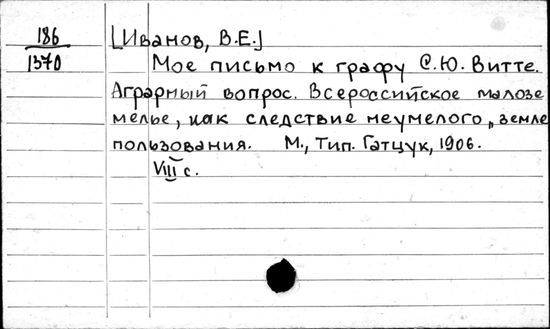 186
1370
[Иванов, В.Е.]
Мое письмо к графу С.Ю. Витте.
Аграрный вопрос. Всероссийское малозе
мелье, как следствие неумелого „земле
пользования. М., Тип. Гатцук, 1906.
VIII с.